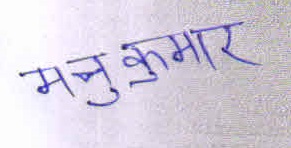 मनु कुमार